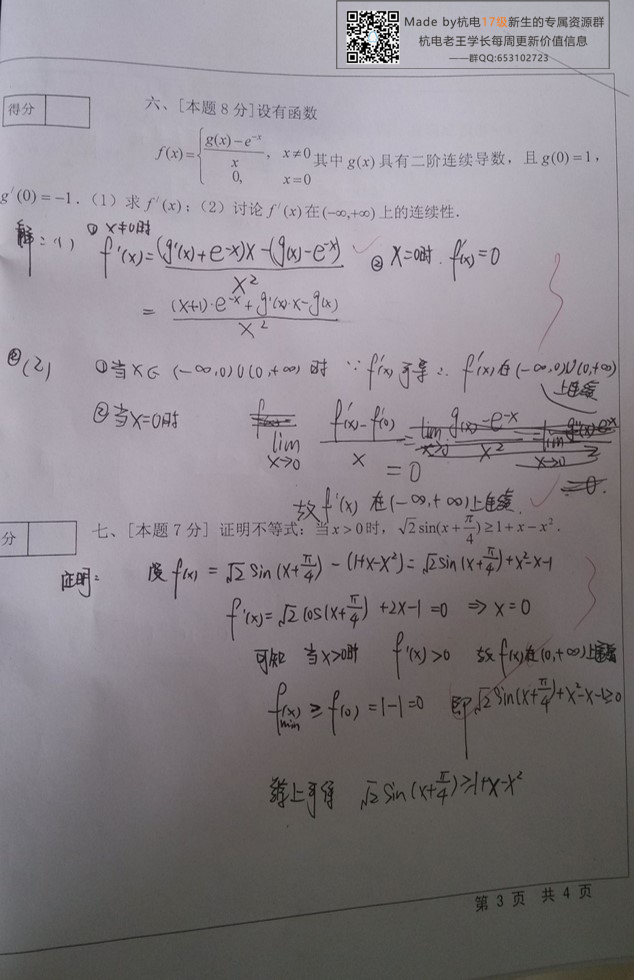 Made by杭电17级新生的专属资源群
杭电老王学长每周更新价值信息
——群QQ:653102723
得分
六、[本题8分]设有函数
f(x)={ (g(x)-e^{-x})/x, x≠0
0, x=0
其中g(x)具有二阶连续导数，且g(0)=1，
g′(0)=-1．（1）求f′(x)；（2）讨论f′(x)在(-∞,+∞)上的连续性．
解：(1) ① x≠0时
f′(x)= ((g′(x)+e^{-x})x-(g(x)-e^{-x}))/x² ② x=0时. f′(x)=0
= ((x+1)·e^{-x}+g′(x)·x-g(x))/x²
(2) ①当x∈(-∞,0)∪(0,+∞)时 ∵f′(x)可导∴f′(x)在(-∞,0)∪(0,+∞)
上连续
②当x=0时 lim_{x→0} (f′(x)-f′(0))/x
=0
故f′(x)在(-∞,+∞)上连续.
分
七、[本题7分] 证明不等式：当x>0时，√2sin(x+π/4)≥1+x-x²．
证明： 设f(x)=√2sin(x+π/4)-(1+x-x²)=√2sin(x+π/4)+x²-x-1
f′(x)=√2cos(x+π/4)+2x-1=0 ⇒x=0
可知 当x>0时 f′(x)>0 故f(x)在(0,+∞)上
f(x)min≥f(0)=1-1=0 即√2sin(x+π/4)+x²-x-1≥0
综上可得 √2sin(x+π/4)≥1+x-x²
第 3 页 共 4 页